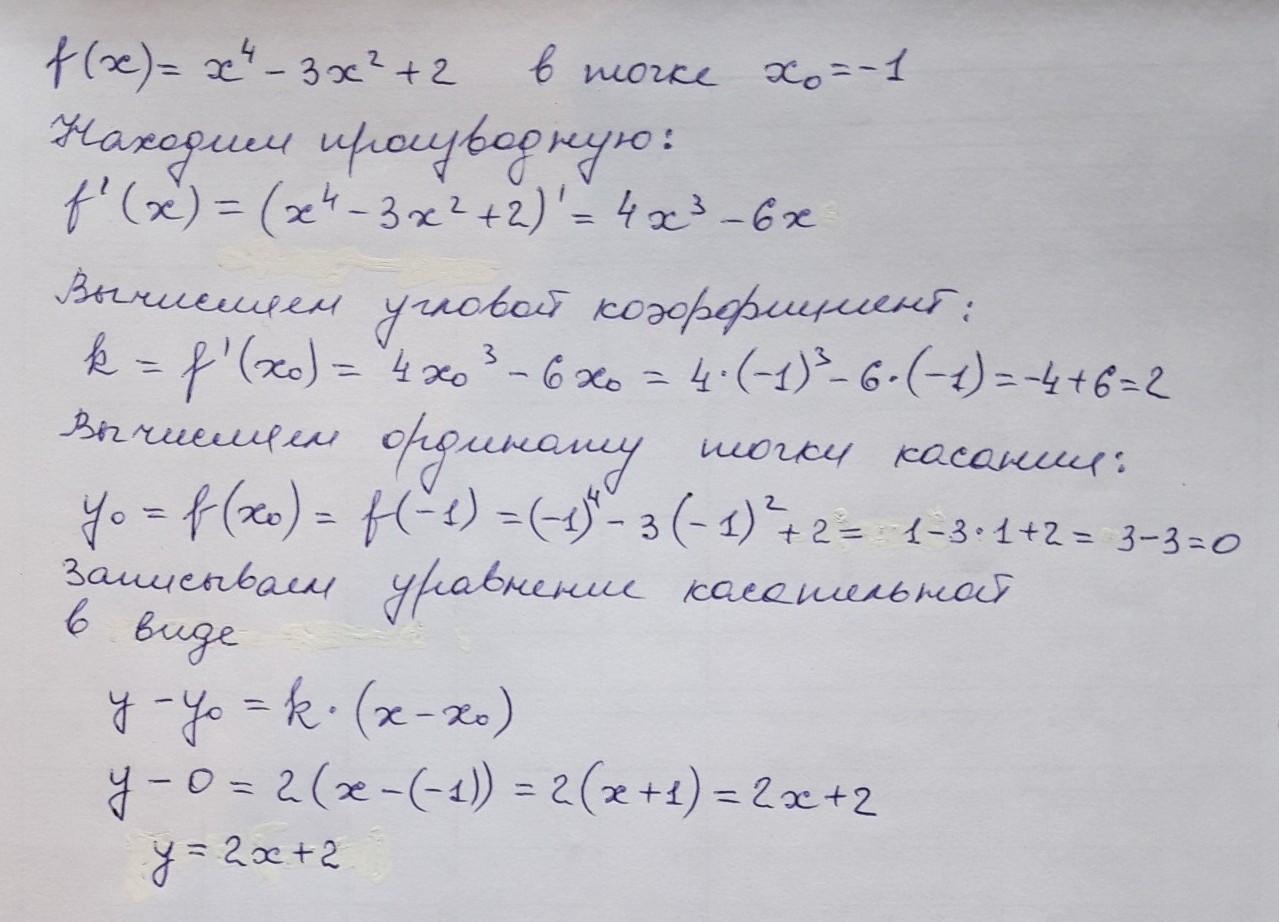 f(x) = x⁴ - 3x² + 2 в точке x₀ = -1
Находим производную:
f'(x) = (x⁴ - 3x² + 2)' = 4x³ - 6x
Вычисляем угловой коэффициент:
k = f'(x₀) = 4x₀³ - 6x₀ = 4·(-1)³ - 6·(-1) = -4+6=2
Вычисляем ординату точки касания:
y₀ = f(x₀) = f(-1) = (-1)⁴ - 3(-1)² + 2 = 1-3·1+2 = 3-3=0
Записываем уравнение касательной
в виде
y - y₀ = k·(x - x₀)
y - 0 = 2(x-(-1)) = 2(x+1) = 2x+2
y = 2x+2